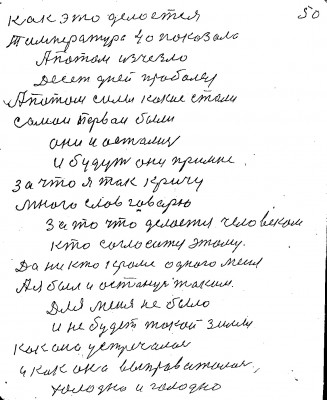 как это делоется 50
Температура 40 показало
Апотом изчезло
Десет дней проболел
Апотом сили какие стали
самои первои были
они и осталису
и будут они при мне
За что я так кричу
много слов говорю
За то что делоется человеком
кто согласится этому.
Да ни кто кроме одного меня
Ая был и останус таким.
Для меня не было
и не будет такой зимы
как она устречалас
и как она выпроваталас,
холодно и голодно